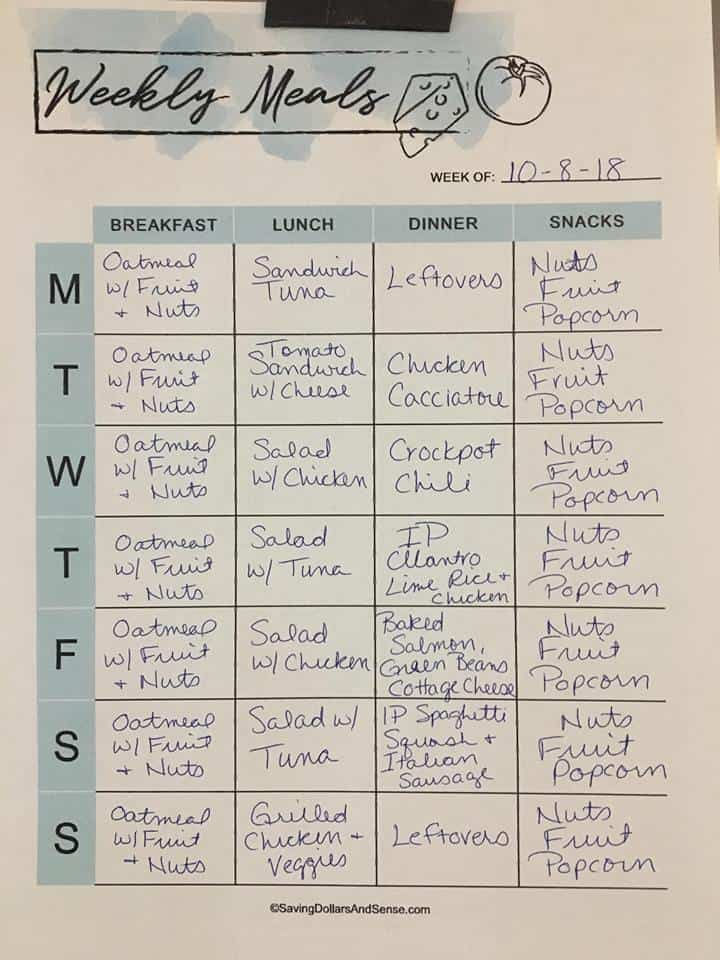 Weekly Meals
WEEK OF: 10-8-18
BREAKFAST LUNCH DINNER SNACKS
M
Oatmeal
w/ Fruit
+ Nuts
Sandwich
Tuna
Leftovers
Nuts
Fruit
Popcorn
T
Oatmeal
w/ Fruit
+ Nuts
Tomato
Sandwich
w/ Cheese
Chicken
Cacciatore
Nuts
Fruit
Popcorn
W
Oatmeal
w/ Fruit
+ Nuts
Salad
w/ Chicken
Crockpot
Chili
Nuts
Fruit
Popcorn
T
Oatmeal
w/ Fruit
+ Nuts
Salad
w/ Tuna
IP
Cilantro
Lime Rice +
Chicken
Nuts
Fruit
Popcorn
F
Oatmeal
w/ Fruit
+ Nuts
Salad
w/ Chicken
Baked
Salmon,
Green Beans
Cottage Cheese
Nuts
Fruit
Popcorn
S
Oatmeal
w/ Fruit
+ Nuts
Salad w/
Tuna
IP Spaghetti
Squash +
Italian
Sausage
Nuts
Fruit
Popcorn
S
Oatmeal
w/ Fruit
+ Nuts
Grilled
Chicken +
Veggies
Leftovers
Nuts
Fruit
Popcorn
©SavingDollarsAndSense.com